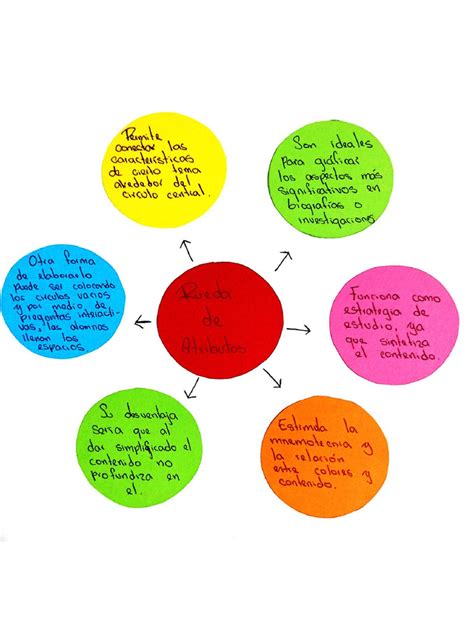 Permite
conectar las
características
de cierto tema
alrededor del
circulo central.
Son ideales
para gráficar
los aspectos más
significativos en
biografías o
investigaciones
Otra forma
de elaborarlo
puede ser colocando
los circulos vacios
y por medio de
preguntas interacti-
vas, los alumnos
llenan los
espacios.
Rueda
de
Atributos
Funciona como
estrategia de
estudio, ya
que sintetiza
el contenido.
Su desventaja
seria que al
dar simplificado el
contenido no
profundiza en
el.
Estimula la
mnemotecnia y
la relación
entre colores y
contenido.